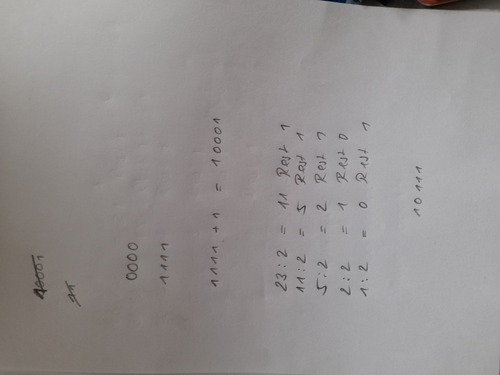 0000
1111
1111 + 1 = 10001
23:2 = 11 Rest 1
11:2 = 5 Rest 1
5:2 = 2 Rest 1
2:2 = 1 Rest 0
1:2 = 0 Rest 1
10111